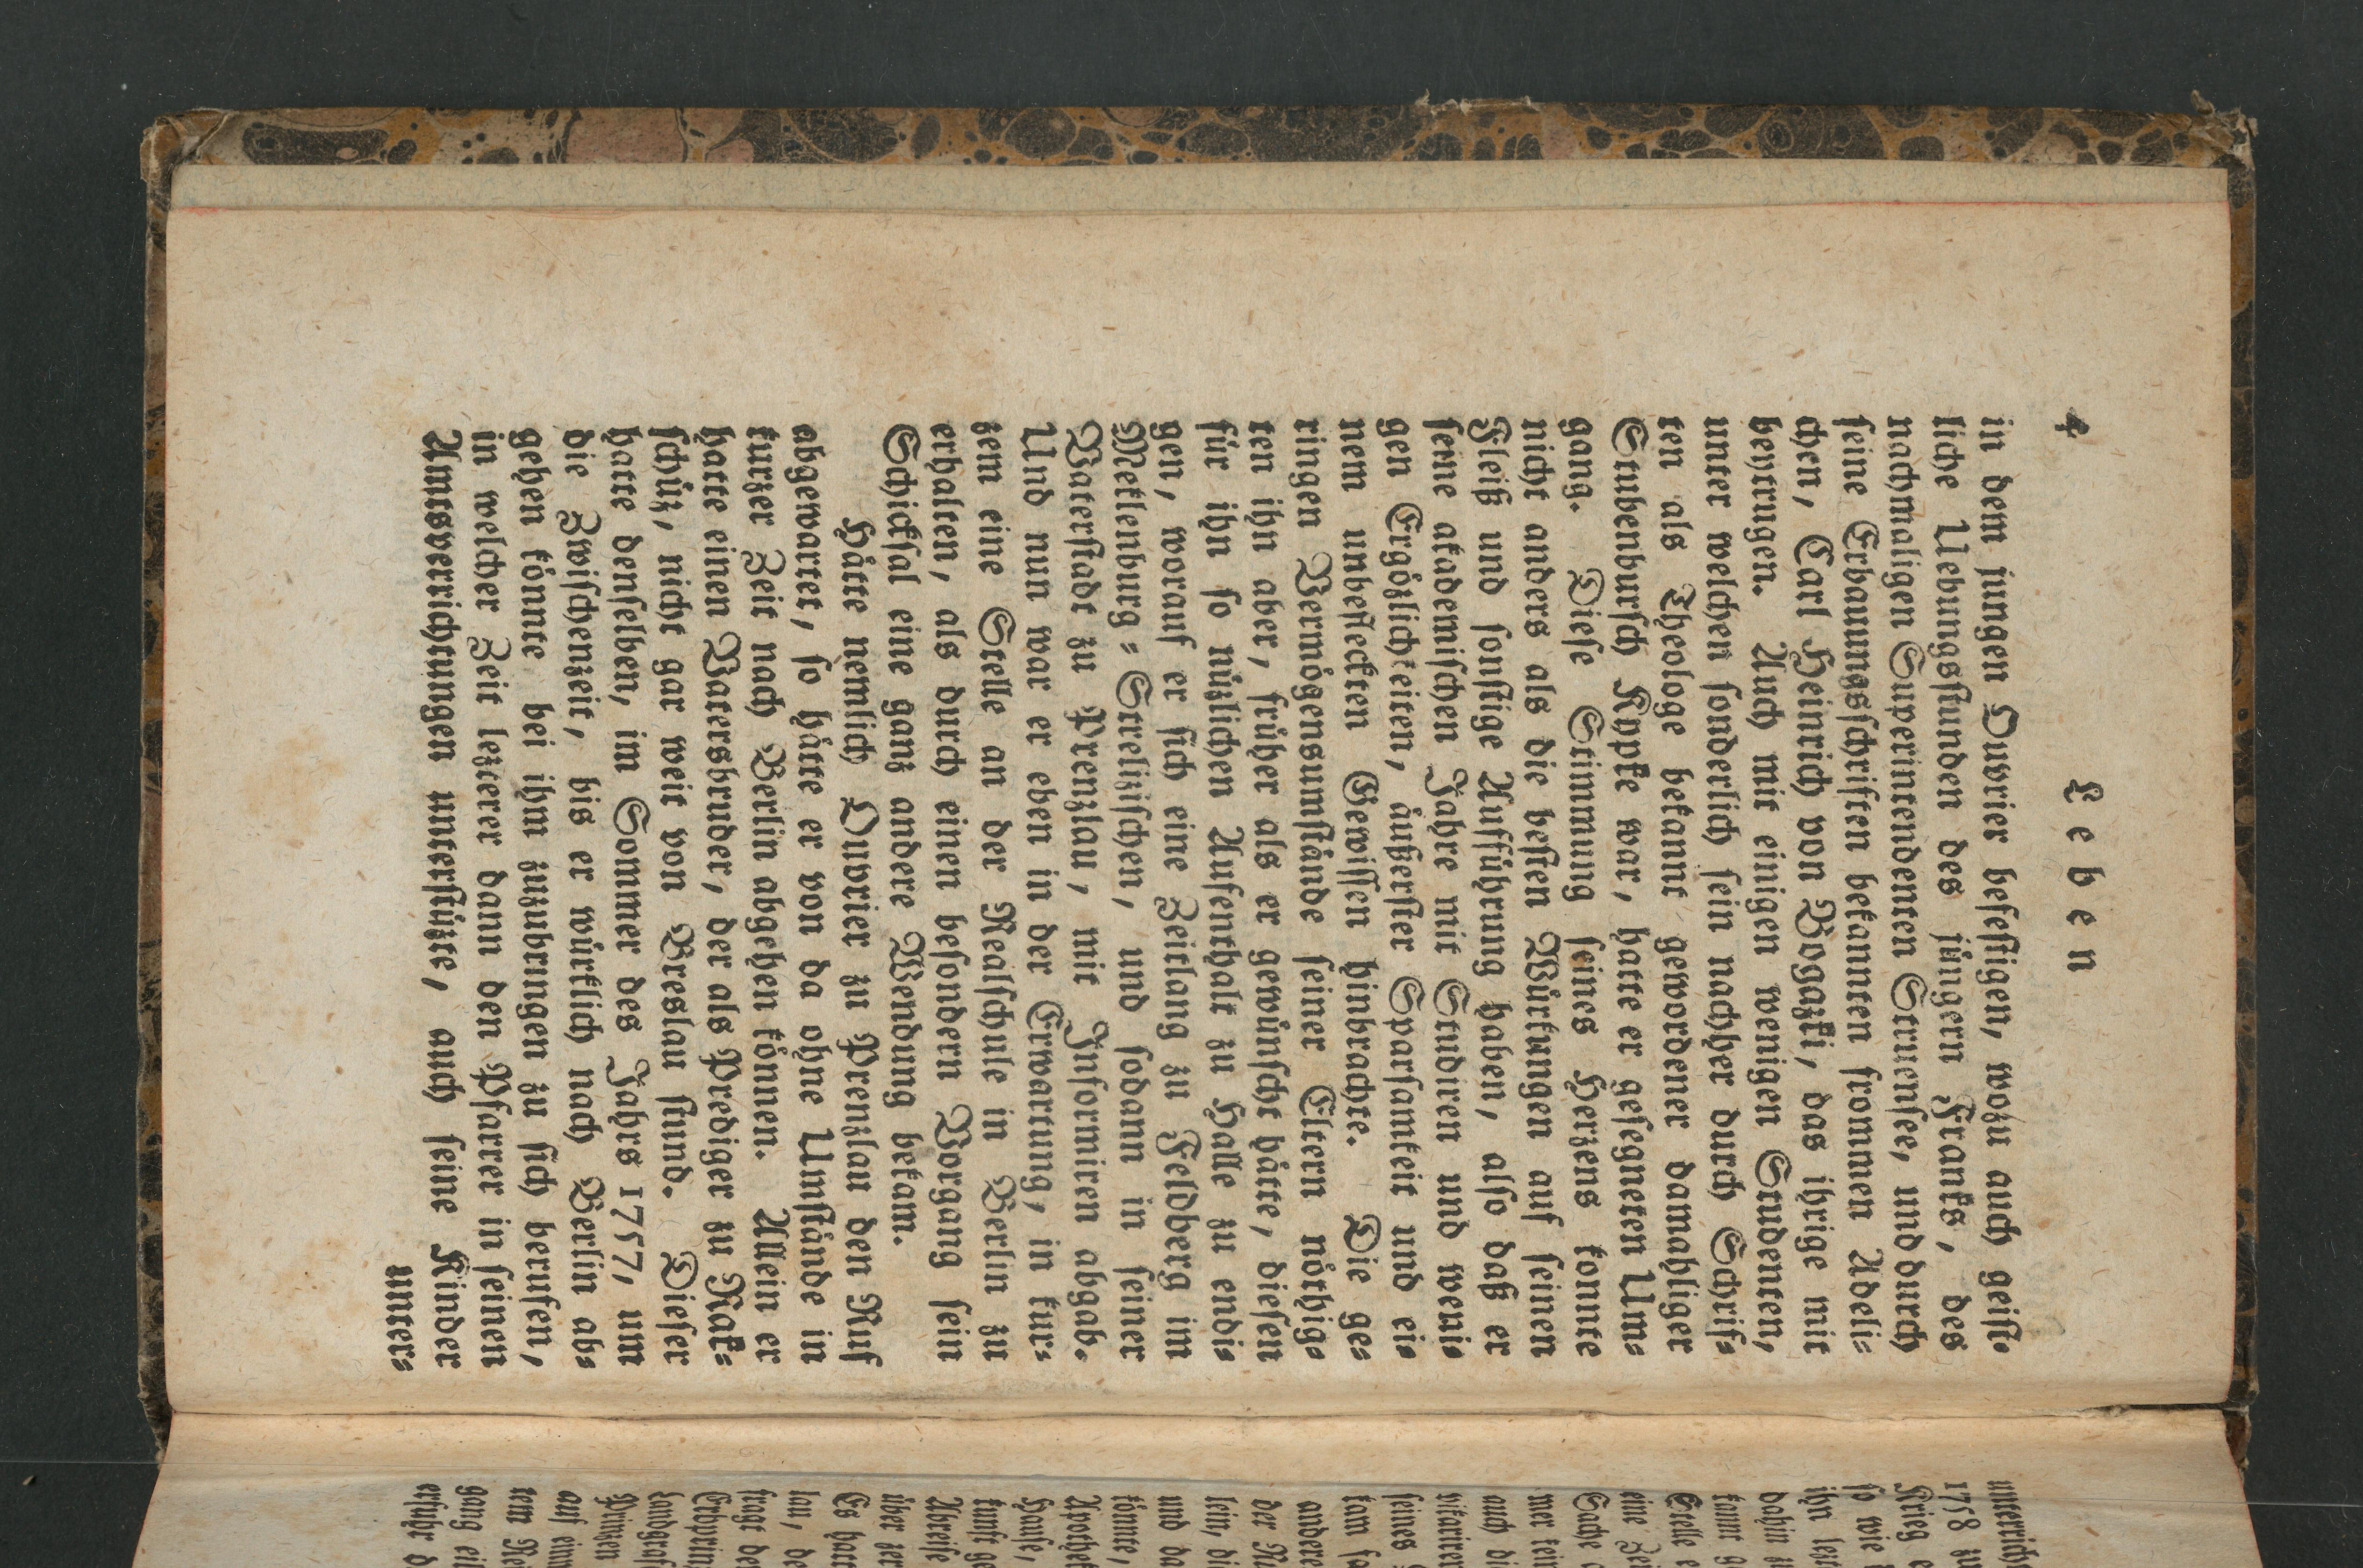 4
Leben
in dem jungen Ouvrier befestigen, wozu auch geist-
liche Uebungsstunden des jüngern Franks, des
nachmaligen Superintendenten Struensee, und durch
seine Erbauungsschriften bekannten frommen Adeli-
chen, Carl Heinrich von Bogatzki, das ihrige mit
beytrugen. Auch mit einigen wenigen Studenten,
unter welchen sonderlich sein nachher durch Schrif-
ten als Theologe bekannt gewordener damahliger
Stubenbursch Kypke war, hatte er gesegneten Um-
gang. Diese Stimmung seines Herzens konnte
nicht anders als die besten Würkungen auf seinen
Fleiß und sonstige Aufführung haben, also daß er
seine akademischen Jahre mit Studiren und weni-
gen Ergözlichkeiten, äußerster Sparsamkeit und ei-
nem unbeflecten Gewissen hinbrachte. Die ge-
ringen Vermögensumstände seiner Eltern nöthig-
ten ihn aber, früher als er gewünscht hätte, diesen
für ihn so nüzlichen Aufenthalt zu Halle zu endi-
gen, worauf er sich eine Zeitlang zu Feldberg im
Meklenburg-Strelizischen, und sodann in seiner
Vaterstadt zu Prenzlau, mit Informiren abgab.
Und nun war er eben in der Erwartung, in kur-
zem eine Stelle an der Realschule in Berlin zu
erhalten, als durch einen besondern Vorgang sein
Schicksal eine ganz andere Wendung bekam.
Hätte nemlich Ouvrier zu Prenzlau den Ruf
abgewartet, so hätte er von da ohne Umstände in
kurzer Zeit nach Berlin abgehen können. Allein er
hatte einen Vatersbruder, der als Prediger zu Rak-
schüz, nicht gar weit von Breslau stund. Dieser
hatte denselben, im Sommer des Jahrs 1757, um
die Zwischenzeit, bis er würklich nach Berlin ab-
gehen könnte bei ihm zuzubringen zu sich berufen,
in welcher Zeit lezterer dann den Pfarrer in seinen
Amtsverrichtungen unterstüzte, auch seine Kinder
unter-
unterrich
1758 zu
Krieg e
so wie
dahin
Stelle e
eine Zei
Sache
auch di
seines
andere
der
und da
könnte,
Hause,
Abreise
über
lau, de
fragt de
Erbprin
Landgraf
Prinzen
auf ein
gang ein
erfuhr d